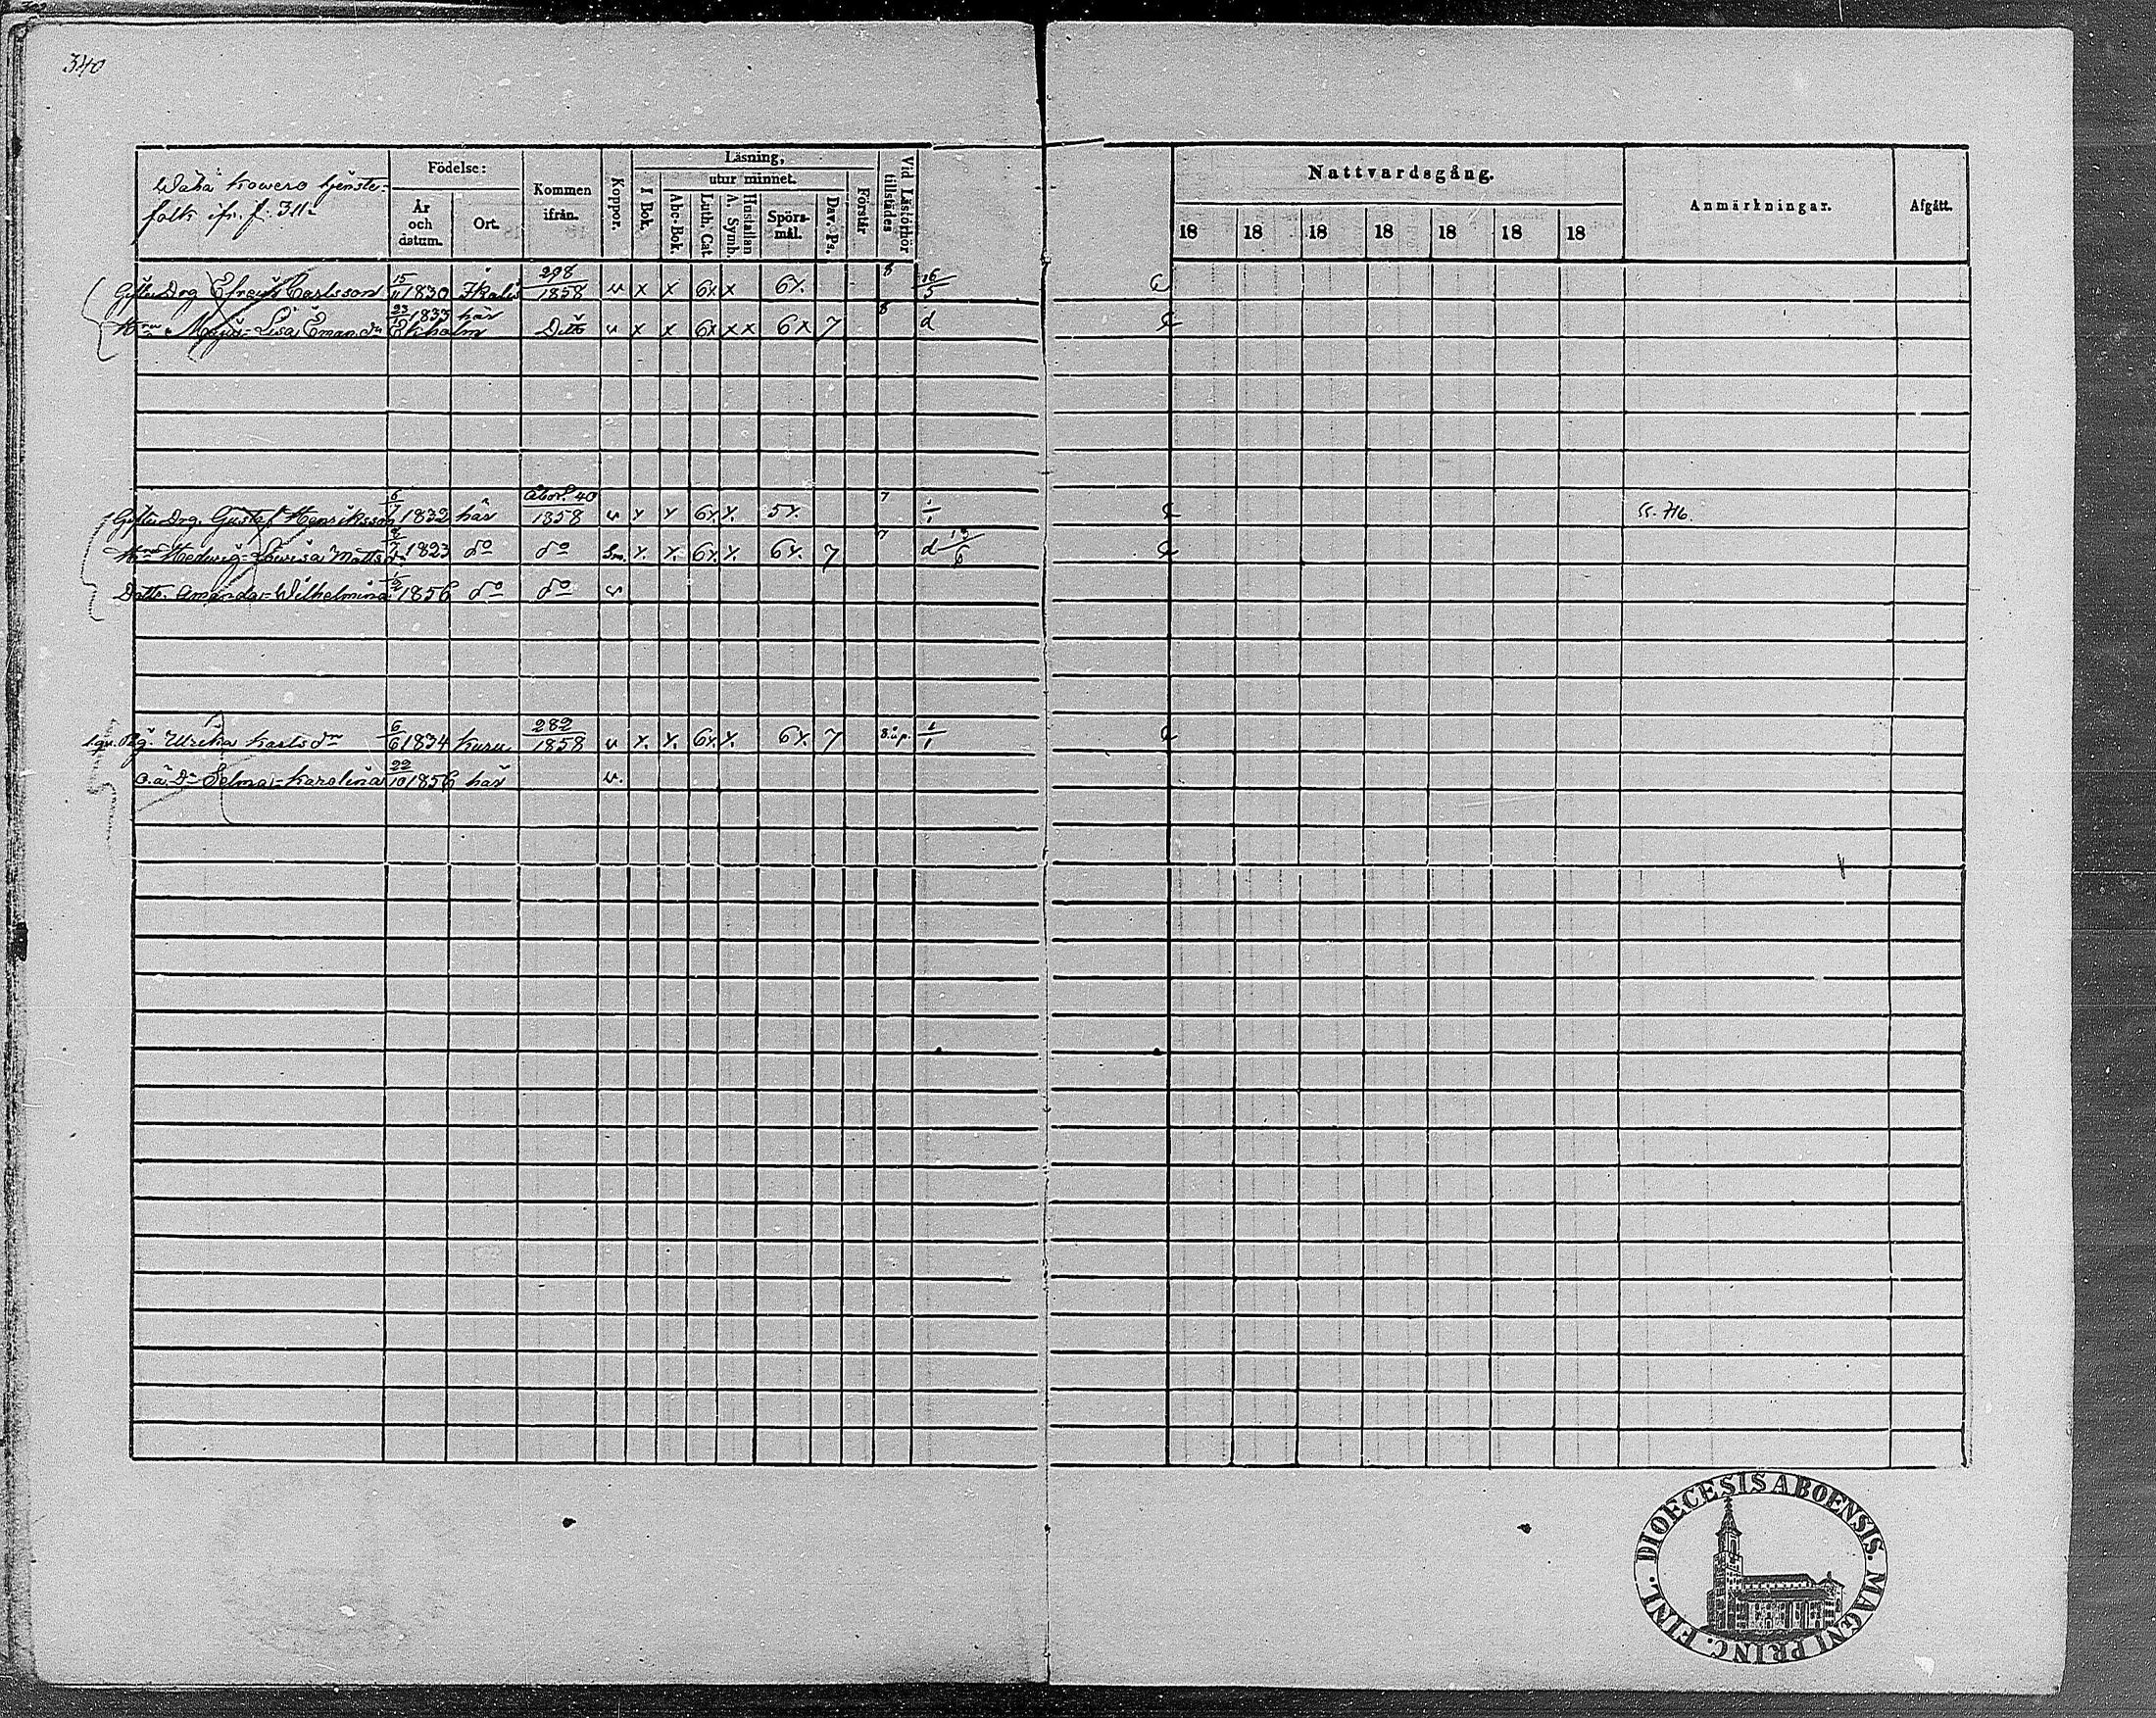 340
Waha Kowero tjenste-
folk ifr. f. 311.
Födelse:
År och datum.
Ort.
Kommen ifrån.
Koppor.
Läsning,
I Bok.
utur minnet.
Abc-Bok.
Luth. Cat.
A. Symb.
Hustaflan
Spörs-mål.
Dav. Ps.
Förstår
Vid Läsförhör tillstädes
Nattvardsgång.
18 18 18 18 18 18 18
Anmärkningar.
Afgått.
Gifte Drg Efraim Carlsson 15/11 1830 Ikalis 298/1858 v x x 6x x 6x. 8 16/5
Maja-Lisa Eman.dr Ekholm 23 1833 här Ditto v x x 6x x x 6x 7 8 d
Gifte Drg. Gustaf Henriksson 6/7 1832 här 40/1858 v x x 6x x. 5x. 7 1/1 ss. 716.
Hedwig-Lowisa Matts dr 1823 do do x. x. 6x. x. 6x. 7 7 d 13/6
Dottr. Amanda-Wilhelmina 1856 do do v
Pig. Ulrika Karls dr 6/6 1834 Kuru 282/1858 v x. x. 6x. x. 6x. 7 1/1
o.ä. Dr Selma-Karolina 22/10 1856 här v.
DIOECESIS ABOENSIS. MAGNI PRINC. FINL.